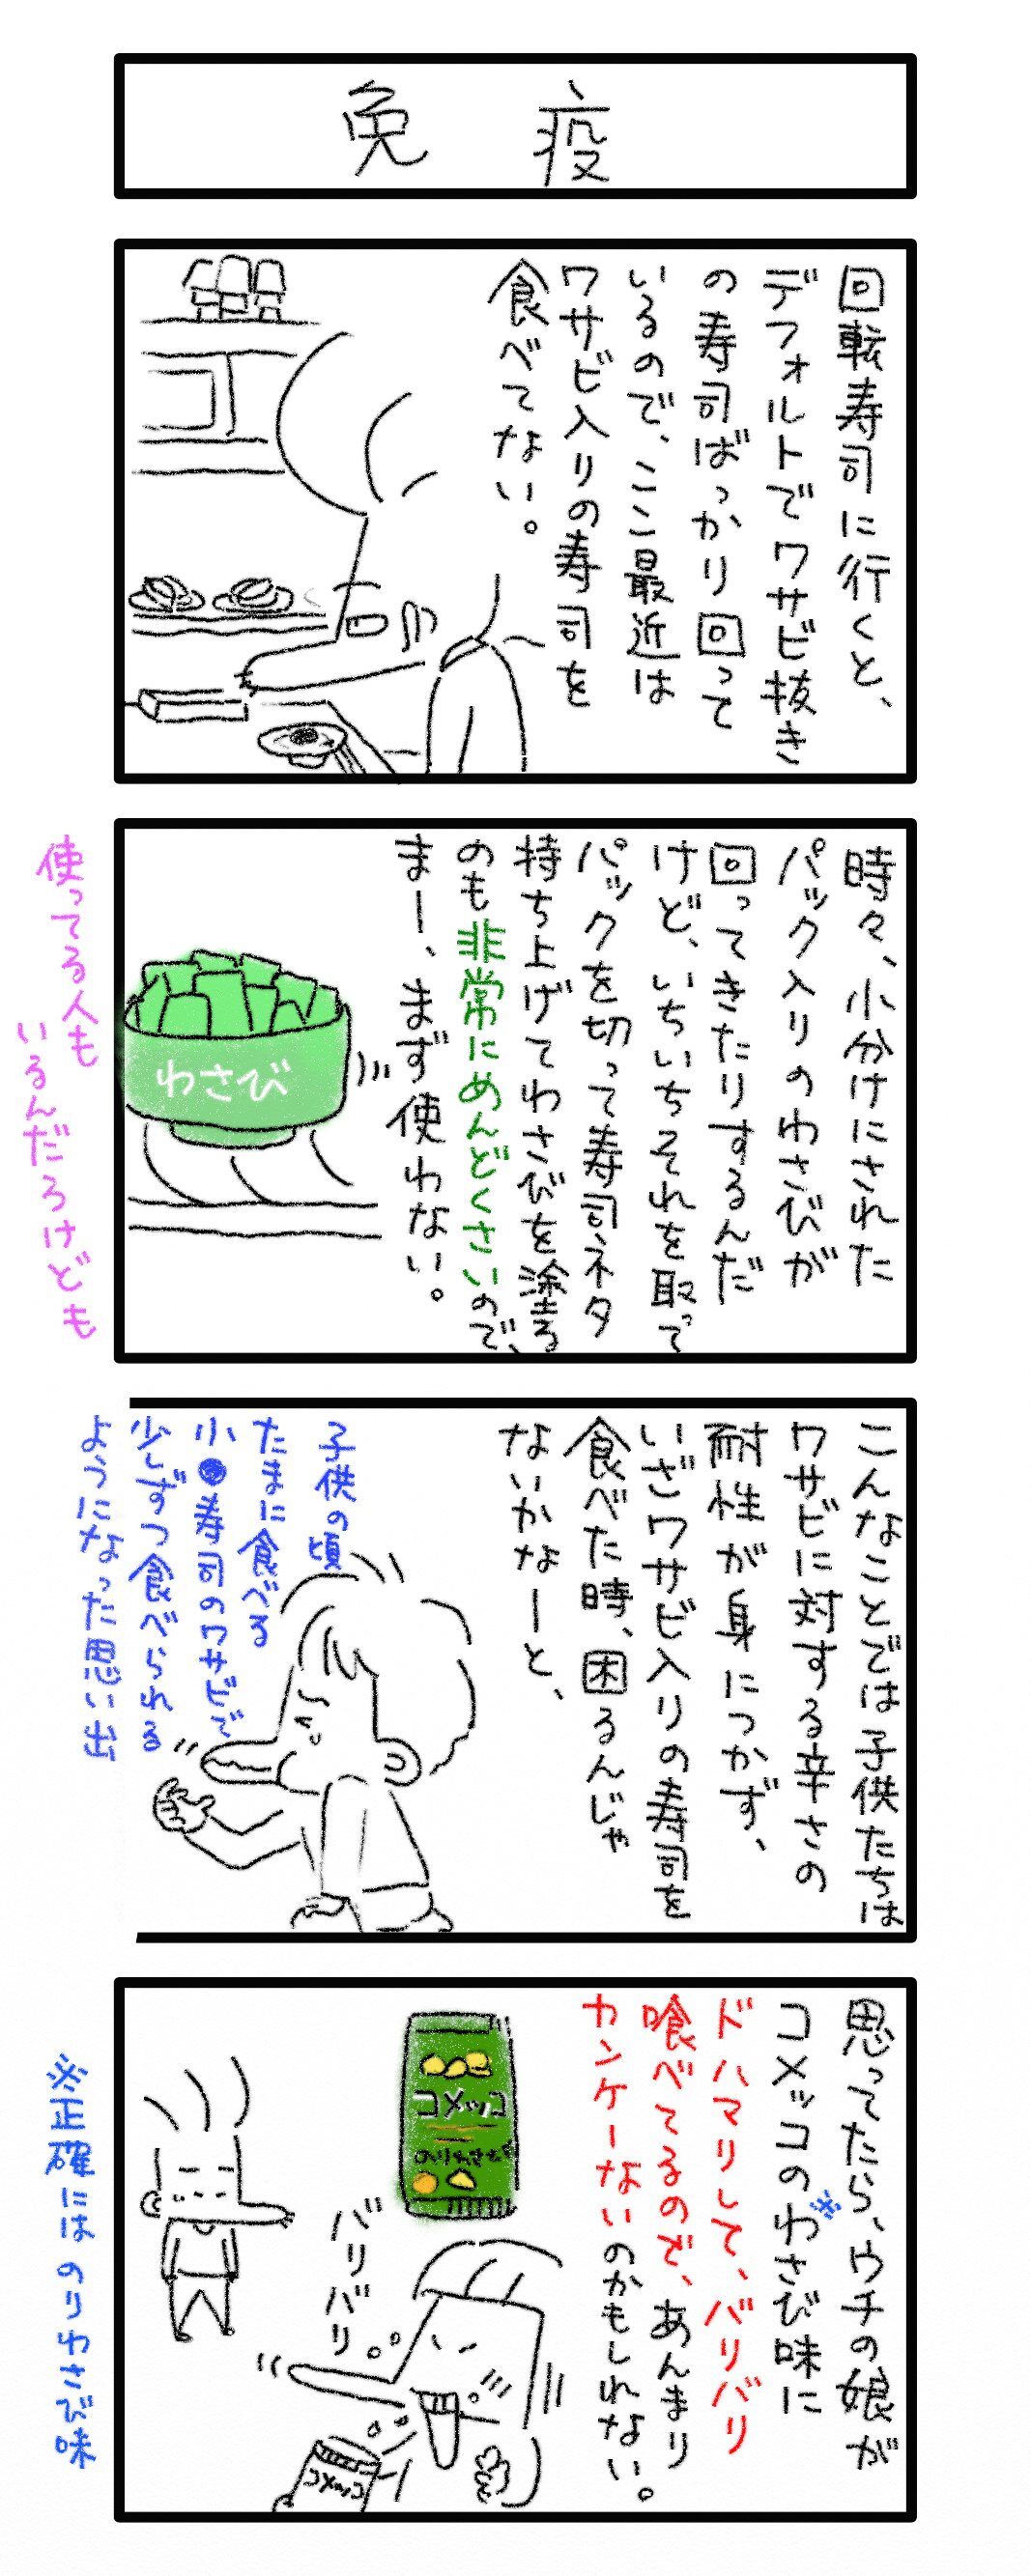 免 疫
回転寿司に行くと、
デフォルトでワサビ抜き
の寿司ばっかり回って
いるので、ここ最近は
ワサビ入りの寿司を
食べてない。
時々、小分けにされた
パック入りのわさびが
回ってきたりするんだ
けど、いちいちそれを取って
パックを切って寿司ネタ
持ち上げてわさびを塗る
のも非常にめんどくさいので、
まー、まず使わない。
わさび
使ってる人も
いるんだろけども
こんなことでは子供たちは
ワサビに対する辛さの
耐性が身につかず、
いざワサビ入りの寿司を
食べた時、困るんじゃ
ないかなーと、
子供の頃
たまに食べる
小●寿司のワサビで
少しずつ食べられる
ようになった思い出
思ってたら、ウチの娘が
コメッコのわさび味に
※
ドハマリして、バリバリ
喰べてるので、あんまり
カンケーないのかもしれない。
コメッコ
のりわさび
バリバリ
コメッコ
※正確にはのりわさび味